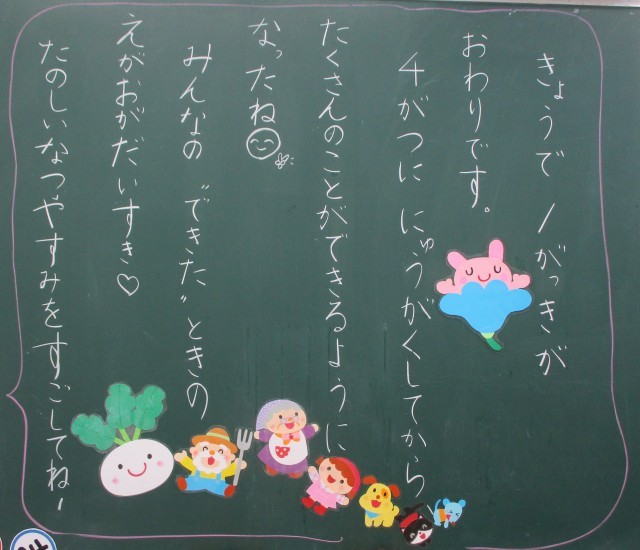 きょうで 1がっきが
おわりです。
4がつに にゅうがくしてから
たくさんのことができるように
なったね
みんなの "できた" ときの
えがおがだいすき♡
たのしいなつやすみをすごしてねー